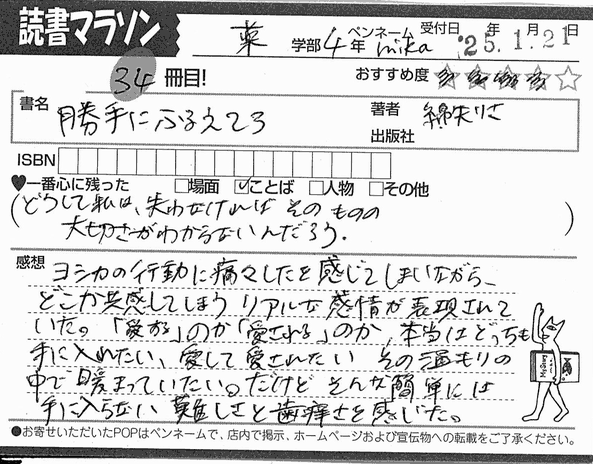 読書マラソン
薬 学部 4年 ペンネーム mika 受付日 '25年1月21日
34 冊目! おすすめ度 ★★★★☆
書名 勝手にふるえてろ 著者 綿矢りさ
出版社
ISBN
♥一番心に残った □場面 ☑ことば □人物 □その他
(どうして私は、失わなければ そのものの
大切さがわからないんだろう。)
感想 ヨシカの行動に痛々しさを感じてしまいながら、
どこか共感してしまう リアルな感情が表現されて
いた。「愛する」のか「愛される」のか、本当はどっちも
手に入れたい、愛して愛されたい その温もりの
中で暖まっていたい。だけど そんな簡単には
手に入らない 難しさと歯痒さを感じた。
●お寄せいただいたPOPはペンネームで、店内で掲示、ホームページおよび宣伝物への転載をご了承ください。